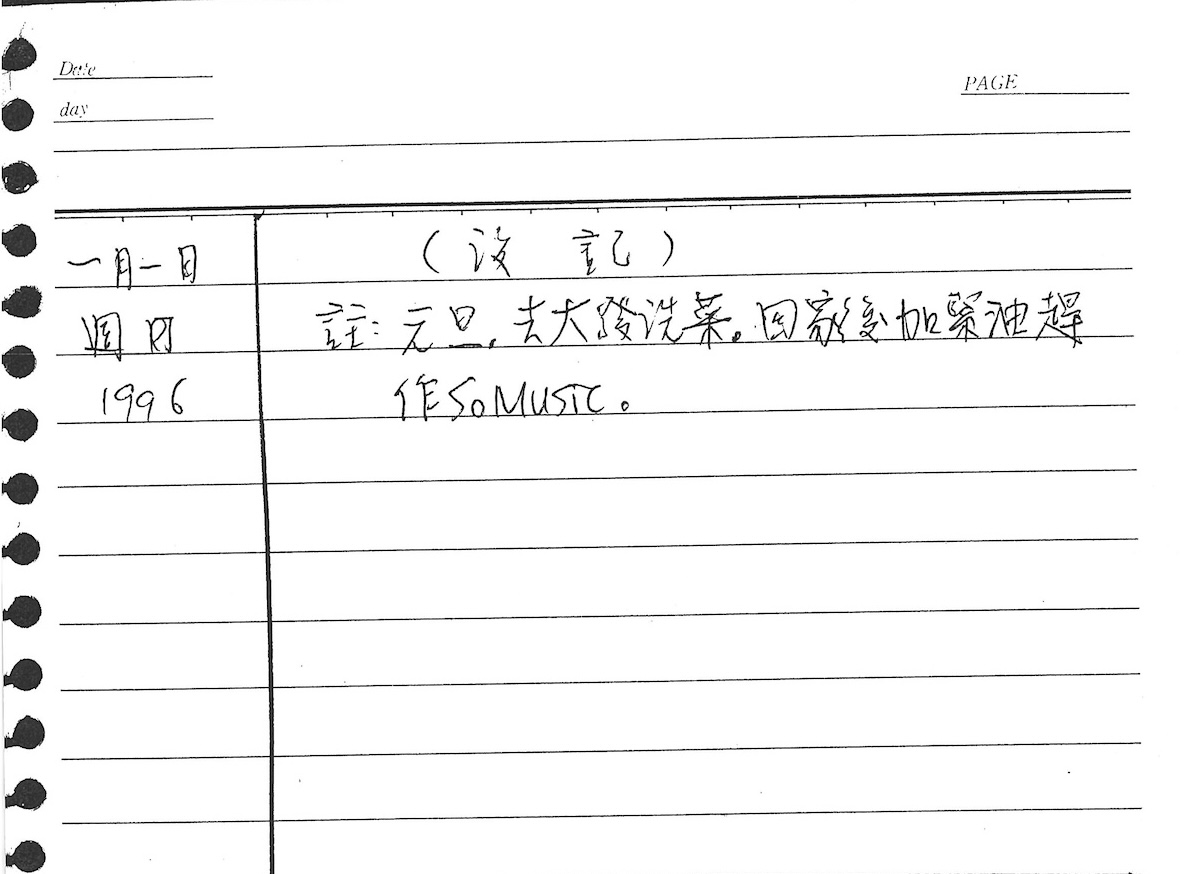 Date
day
PAGE
一月一日 (沒 記)
週日
註:元旦,去大發洗菜。回家後加緊油趕
1996
作SoMUSIC。